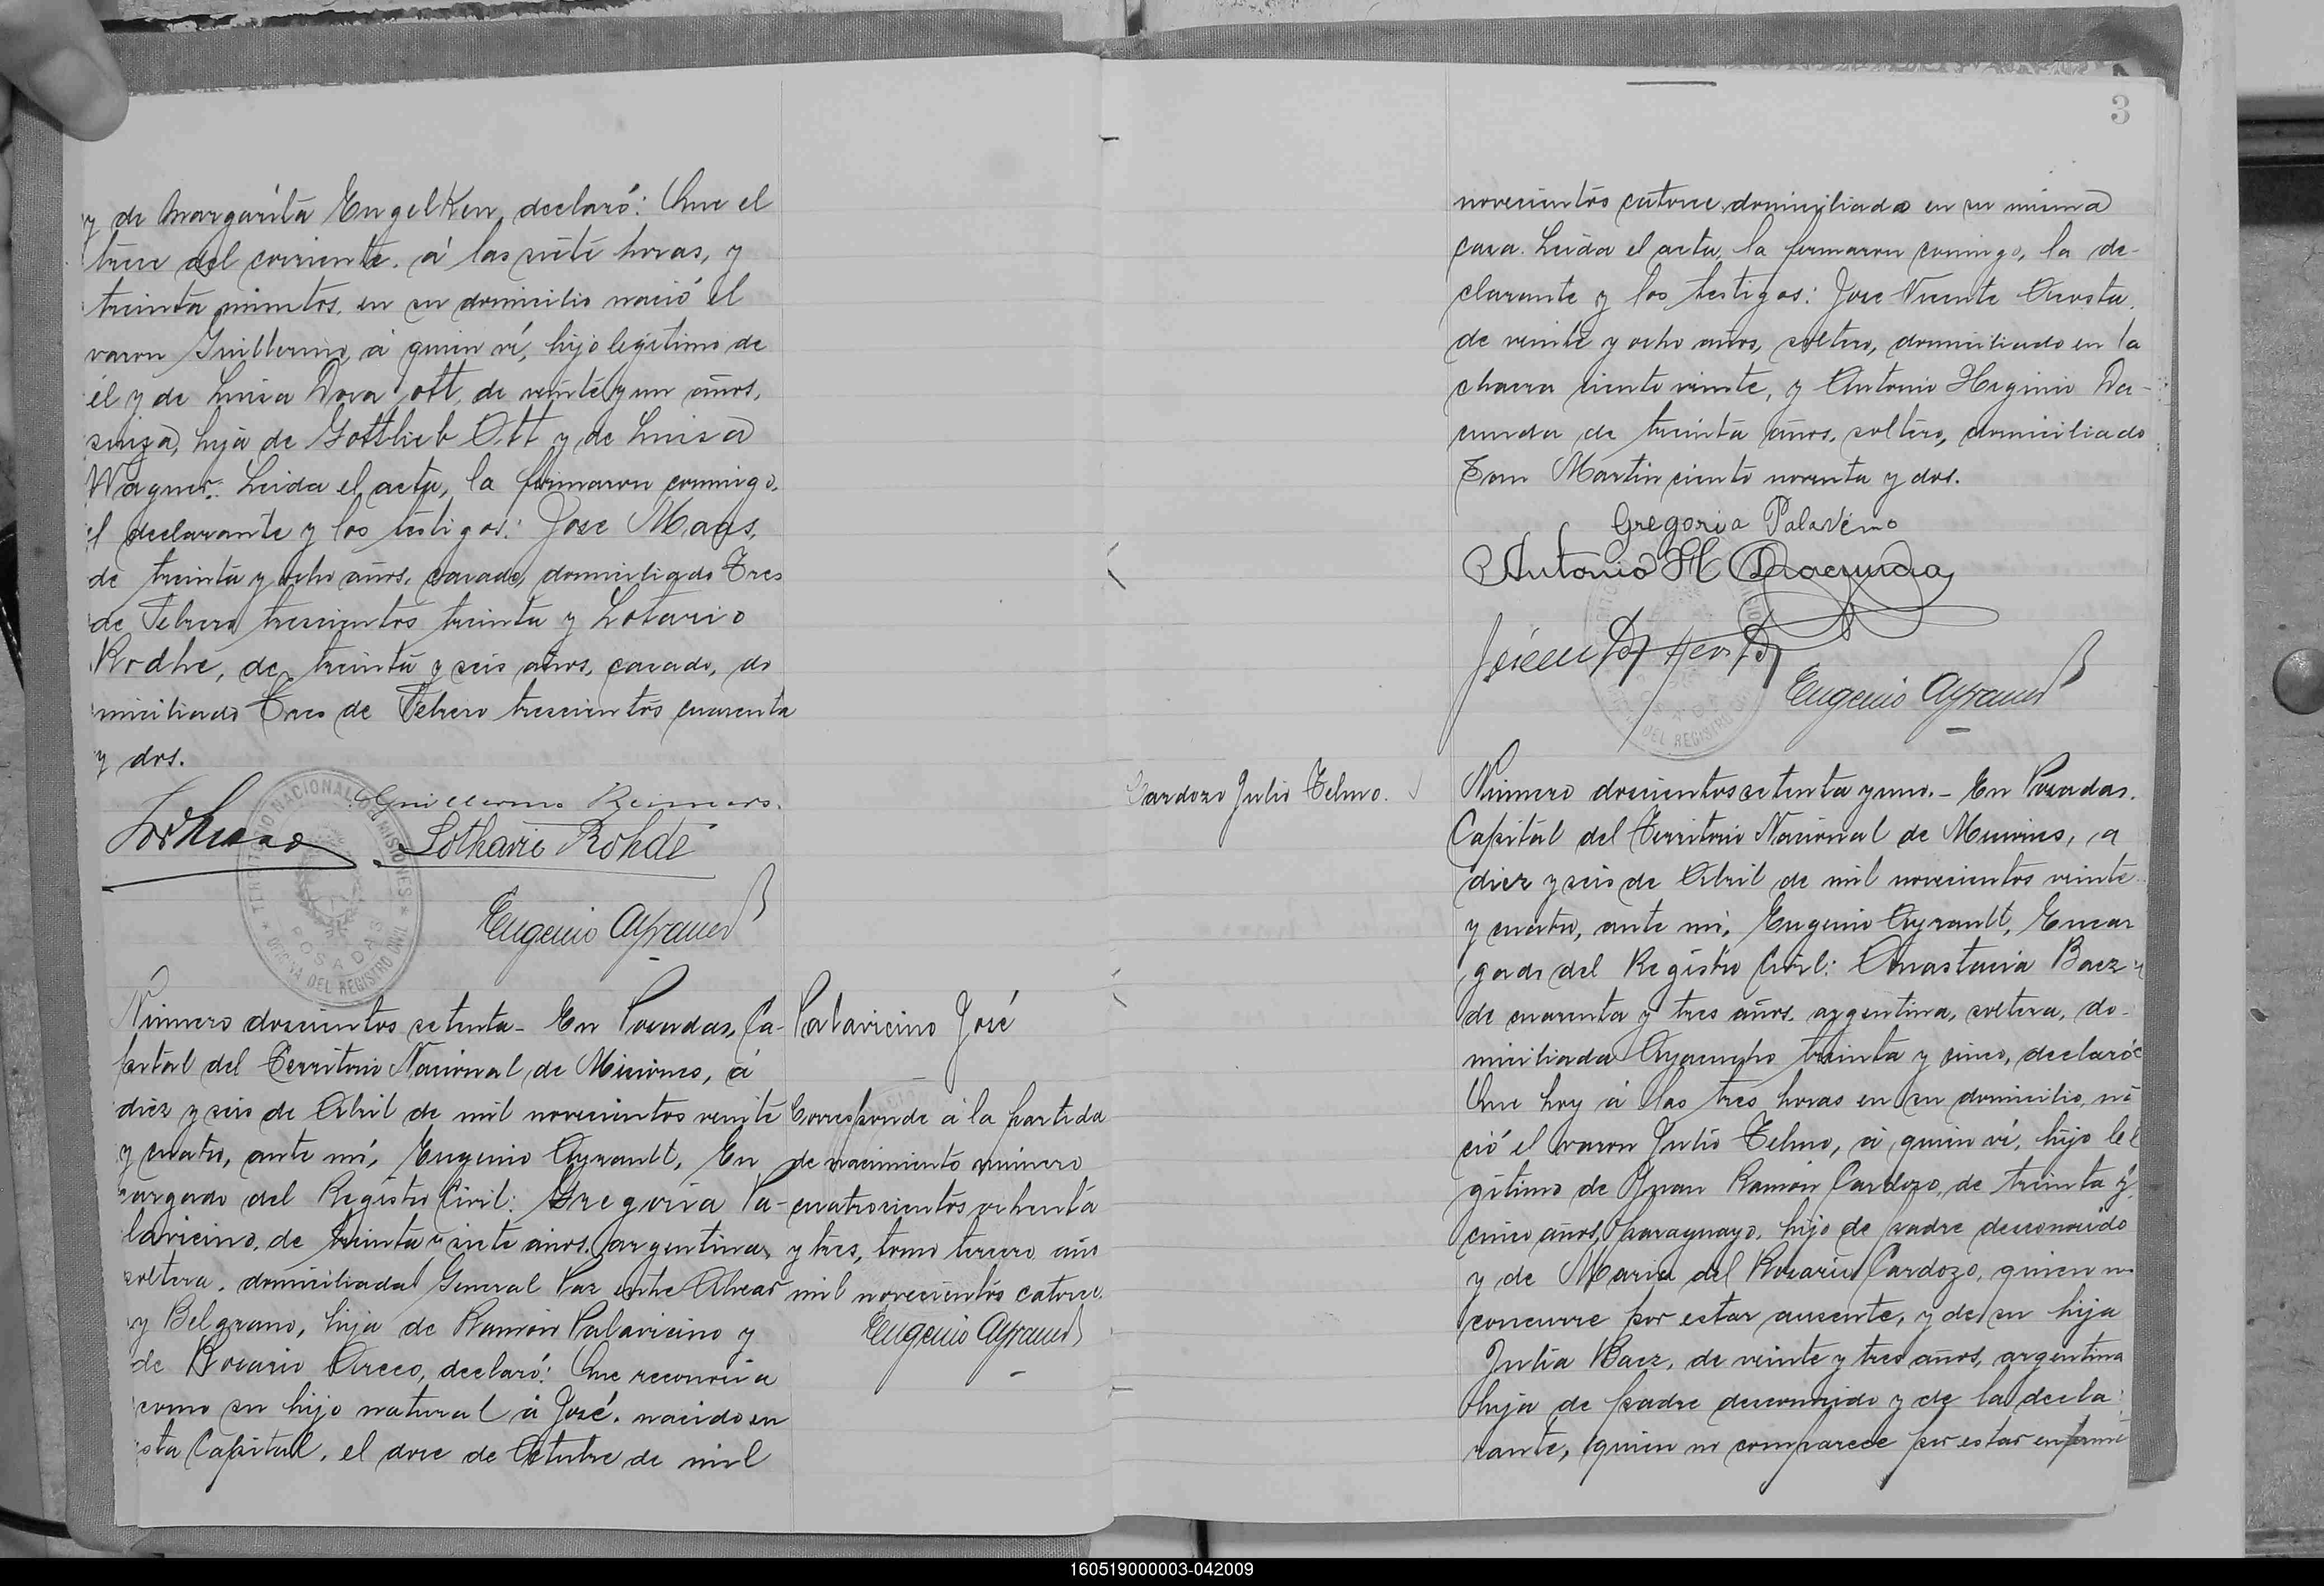 y de Margarita Engelken, declaró: Que el
trece del corriente. á las siete horas, y
treinta minutos, en su domicilio nació el
varon Guillermo, á quien ví, hijo legitimo de
él y de Luisa Dora Ott, de veinte y un años,
suiza, hija de Gottlieb Ott y de Luisa
Wagner. Leida el acta, la firmaron conmigo,
el declarante y los testigos: Jose Maas,
de treinta y ocho años, casado, domiciliado Tres
de Febrero trescientos treinta y Lotario
Rodhe, de treinta y seis años, casado, do
miciliado Tres de Febrero trescientos cuarenta
y dos.
Guillermo Reimers.
Lothario Rohde
TERRITORIO NACIONAL DE MISIONES
POSADAS
OFICINA DEL REGISTRO CIVIL
Eugenio Ayrault
Número doscientos setenta- En Posadas, Ca-
pital del Territorio Nacional de Misiones, á
diez y seis de Abril de mil novecientos veinte
y cuatro, ante mí, Eugenio Ayrault, En
cargado del Registro Civil: Gregoria Pa-
lavicino, de treinta y siete años, argentina,
soltera, domiciliada General Paz entre Alvear
y Belgrano, hija de Ramón Palavicino y
de Rosario Areco, declaró: Que reconocia
como su hijo natural á José, nacido en
esta Capital, el doce de Octubre de mil
Palavicino José
Corresponde á la partida
de nacimiento número
cuatrocientos ochenta
y tres, tomo tercero año
mil novecientos catorce.
Eugenio Ayrault
3
novecientos catorce, domiciliado en su misma
casa. Leida el acta, la firmaron conmigo, la de-
clarante y los testigos: Jose Vicente Acosta,
de veinte y ocho años, soltero, domiciliado en la
chacra ciento veinte, y Antonio Higinio Da-
cunda de treinta años, soltero, domiciliado
San Martin ciento noventa y dos.
Gregoria Palavicino
Antonio H Dacunda
DEL REGISTRO
Eugenio Ayrault
Cardozo Julio Telmo.
Número doscientos setenta y uno.- En Posadas.
Capital del Territorio Nacional de Misiones, a
diez y seis de Abril de mil novecientos veinte
y cuatro, ante mí, Eugenio Ayrault, Encar
gado del Registro Civil: Anastacia Baez
de cuarenta y tres años, argentina, soltera, do-
miciliada Ayacucho treinta y cinco, declaró:
Que hoy á las tres horas en su domicilio, na
ció el varon Julio Telmo, á quien ví, hijo le
gítimo de Juan Ramón Cardozo, de treinta y
cinco años, paraguayo, hijo de padre desconocido
y de Maria del Rosario Cardozo, quien no
concurre por estar ausente, y de su hija
Julia Baez, de veinte y tres años, argentina
hija de padre desconocido y de la decla
rante, quien no comparece por estar enferma
160519000003-042009